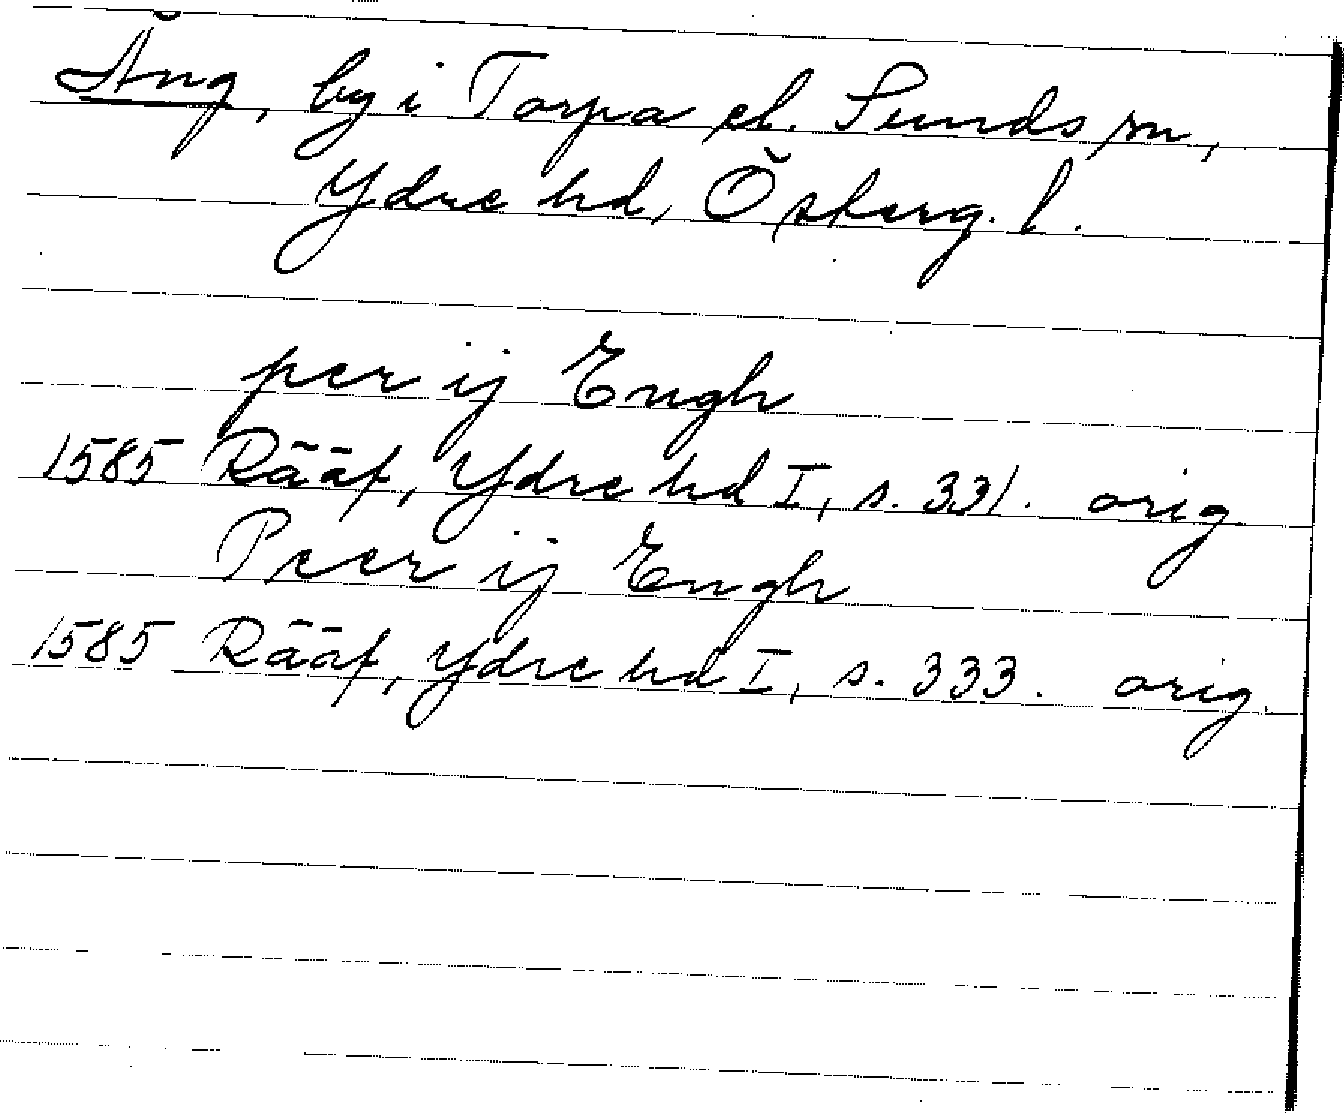 Äng, by i Torpa el. Sunds sn,
Ydre hd, Österg. l.
per ij Engh
1585 Rääf, Ydre hd I, s. 331. orig
Peer ij Engh
1585 Rääf, Ydre hd I, s. 333. orig.